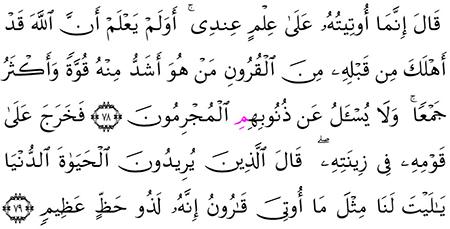 قَالَ إِنَّمَآ أُوتِيتُهُۥ عَلَىٰ عِلْمٍ عِندِىٓ ۚ أَوَلَمْ يَعْلَمْ أَنَّ ٱللَّهَ قَدْ
أَهْلَكَ مِن قَبْلِهِۦ مِنَ ٱلْقُرُونِ مَنْ هُوَ أَشَدُّ مِنْهُ قُوَّةً وَأَكْثَرُ
جَمْعًا ۚ وَلَا يُسْـَٔلُ عَن ذُنُوبِهِمُ ٱلْمُجْرِمُونَ ﴿٧٨﴾ فَخَرَجَ عَلَىٰ
قَوْمِهِۦ فِى زِينَتِهِۦ ۖ قَالَ ٱلَّذِينَ يُرِيدُونَ ٱلْحَيَوٰةَ ٱلدُّنْيَا
يَٰلَيْتَ لَنَا مِثْلَ مَآ أُوتِىَ قَٰرُونُ إِنَّهُۥ لَذُو حَظٍّ عَظِيمٍ ﴿٧٩﴾